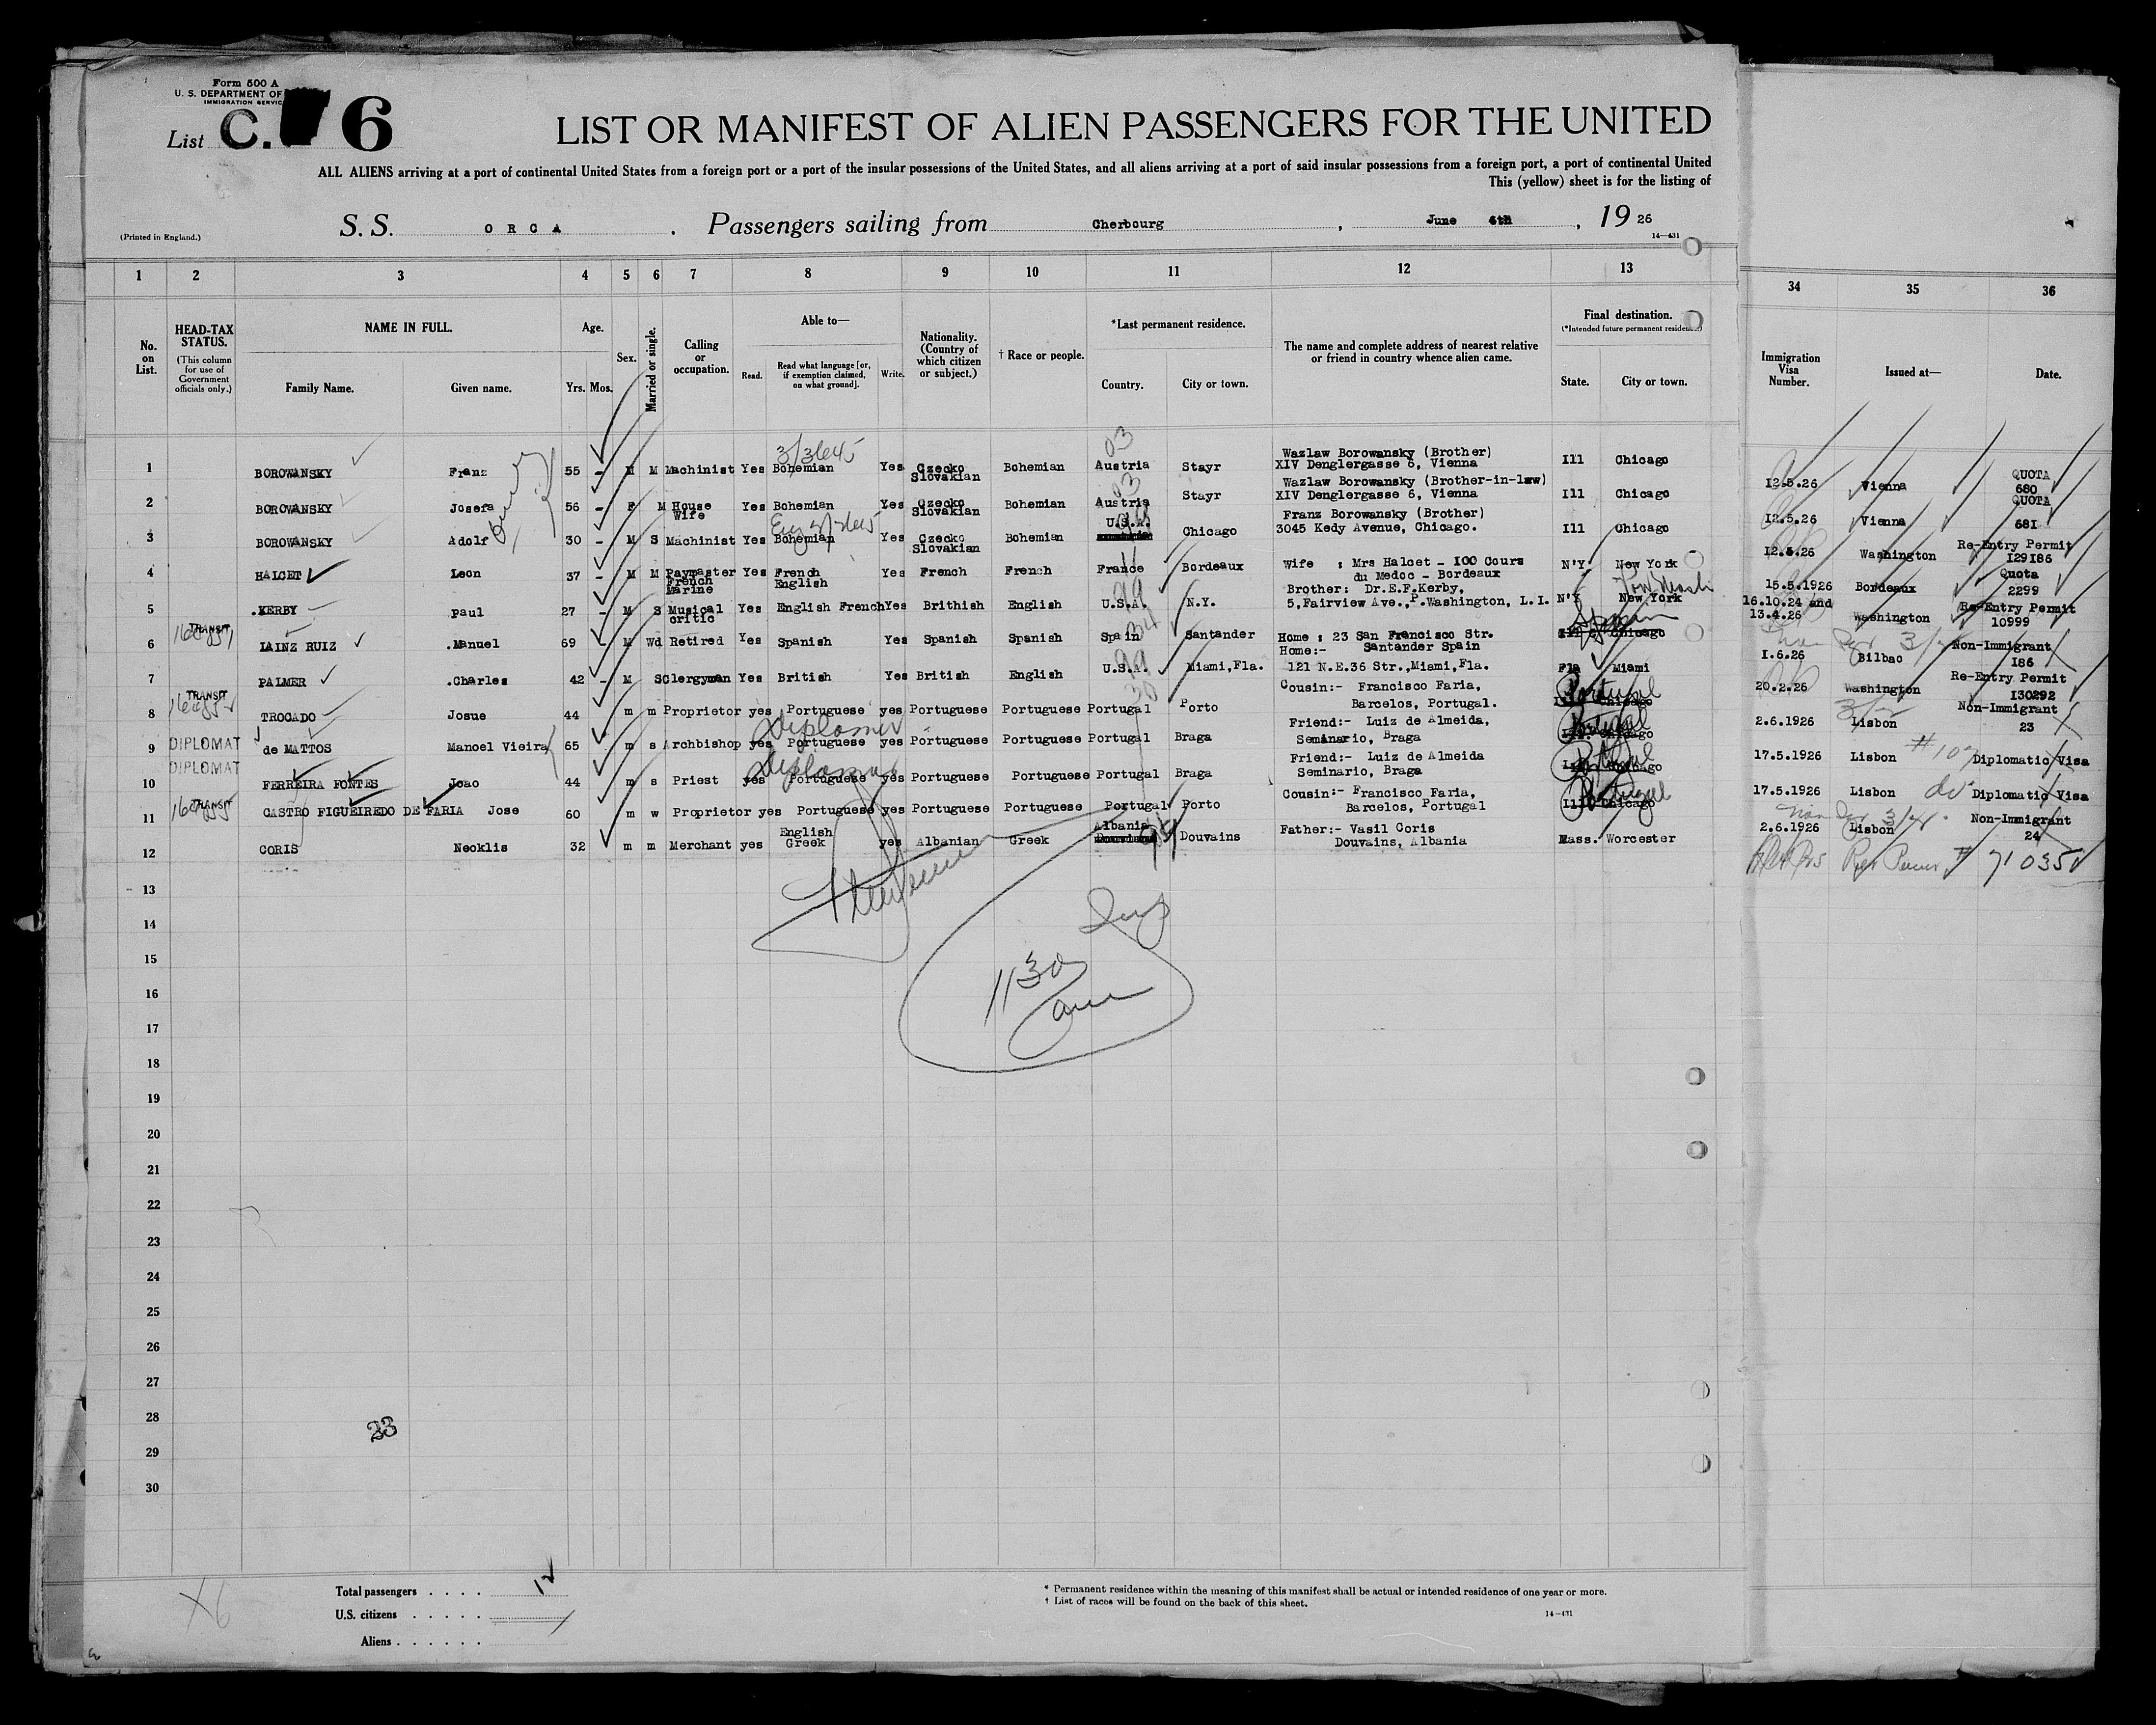 Form 500 A
U. S. DEPARTMENT OF
IMMIGRATION SERVIC
List C. 6
LIST OR MANIFEST OF ALIEN PASSENGERS FOR THE UNITED
ALL ALIENS arriving at a port of continental United States from a foreign port or a port of the insular possessions of the United States, and all aliens arriving at a port of said insular possessions from a foreign port, a port of continental United
This (yellow) sheet is for the listing of
(Printed in England.)
S. S. ORCA . Passengers sailing from Cherbourg , June , 19 26
14—431
1 2 3 4 5 6 7 8 9 10 11 12 13 34 35 36
No. on List.
HEAD-TAX STATUS.
(This column for use of Government officials only.)
NAME IN FULL.
Family Name. Given name.
Age.
Yrs. Mos.
Sex.
Married or single.
Calling or occupation.
Able to—
Read. Read what language [or, if exemption claimed, on what ground]. Write.
Nationality. (Country of which citizen or subject.)
† Race or people.
*Last permanent residence.
Country. City or town.
The name and complete address of nearest relative or friend in country whence alien came.
Final destination.
(*Intended future permanent residence.)
State. City or town.
Immigration Visa Number.
Issued at—
Date.
1 BOROWANSKY Franz 55 - M M Machinist Yes Bohemian Yes Czecko Slovakian Bohemian Austria Stayr Wazlaw Borowansky (Brother) XIV Denglergasse 6, Vienna Ill Chicago
2 BOROWANSKY Josefa 56 - F M House Wife Yes Bohemian Yes Czecko Slovakian Bohemian Austria Stayr Wazlaw Borowansky (Brother-in-law) XIV Denglergasse 6, Vienna Ill Chicago
3 BOROWANSKY Adolf 30 - M S Machinist Yes Bohemian Yes Czecko Slovakian Bohemian U.S.A. Chicago Franz Borowansky (Brother) 3045 Kedy Avenue, Chicago. Ill Chicago
4 HALCET Leon 37 - M M Paymaster French Marine Yes French English Yes French French France Bordeaux Wife : Mrs Halcet - I00 Cours du Medoc - Bordeaux N'Y New York
5 .KERBY paul 27 - M S Musical critic Yes English French Yes Brithish English U.S.A. N.Y. Brother: Dr.E.F.Kerby, 5,Fairview Ave.,P.Washington, L.I. N'Y New York
TRANSIT
6 IAINZ RUIZ .Manuel 69 - M Wd Retired Yes Spanish Yes Spanish Spanish Spain Santander Home : 23 San Francisco Str. Santander Spain Chicago Spain
7 PALMER .Charles 42 - M S Clergyman Yes British Yes British English U.S.A. Miami,Fla. Home:- 121 N.E.36 Str.,Miami,Fla. Fla Miami
TRANSIT
8 TROCADO Josue 44 m m Proprietor yes Portuguese yes Portuguese Portuguese Portugal Porto Cousin:- Francisco Faria, Barcelos, Portugal. Chicago Portugal
DIPLOMAT
9 de MATTOS Manoel Vieira 65 m s Archbishop yes Portuguese yes Portuguese Portuguese Portugal Braga Friend:- Luiz de Almeida, Seminario, Braga Chicago Portugal
DIPLOMAT
10 FERREIRA FONTES Joao 44 m s Priest yes Portuguese yes Portuguese Portuguese Portugal Braga Friend:- Luiz de Almeida Seminario, Braga Chicago Portugal
TRANSIT
11 CASTRO FIGUEIREDO DE FARIA Jose 60 m w Proprietor yes Portuguese yes Portuguese Portuguese Portugal Porto Cousin:- Francisco Faria, Barcelos, Portugal Ill Chicago Portugal
12 CORIS Neoklis 32 m m Merchant yes English Greek yes Albanian Greek Albania Douvains Father:- Vasil Coris Douvains, Albania Mass. Worcester
I2.5.26 Vienna QUOTA 680
I2.5.26 Vienna QUOTA 68I
I2.5.26 Washington Re-Entry Permit I29I86
15.5.1926 Bordeaux Quota 2299
16.10.24 and 13.4.26 Washington Re-Entry Permit 10999
I.6.26 Bilbao Non-Immigrant I86
20.2.26 Washington Re-Entry Permit I30292
2.6.1926 Lisbon Non-Immigrant 23
17.5.1926 Lisbon Diplomatic Visa
17.5.1926 Lisbon Diplomatic Visa
2.6.1926 Lisbon Non-Immigrant 24
71035
13
14
15
1130 am
16
17
18
19
20
21
22
23
24
25
26
27
28
23
29
30
Total passengers . . . . 12
U.S. citizens . . . . .
Aliens . . . . . .
* Permanent residence within the meaning of this manifest shall be actual or intended residence of one year or more.
† List of races will be found on the back of this sheet.
14—431
X6